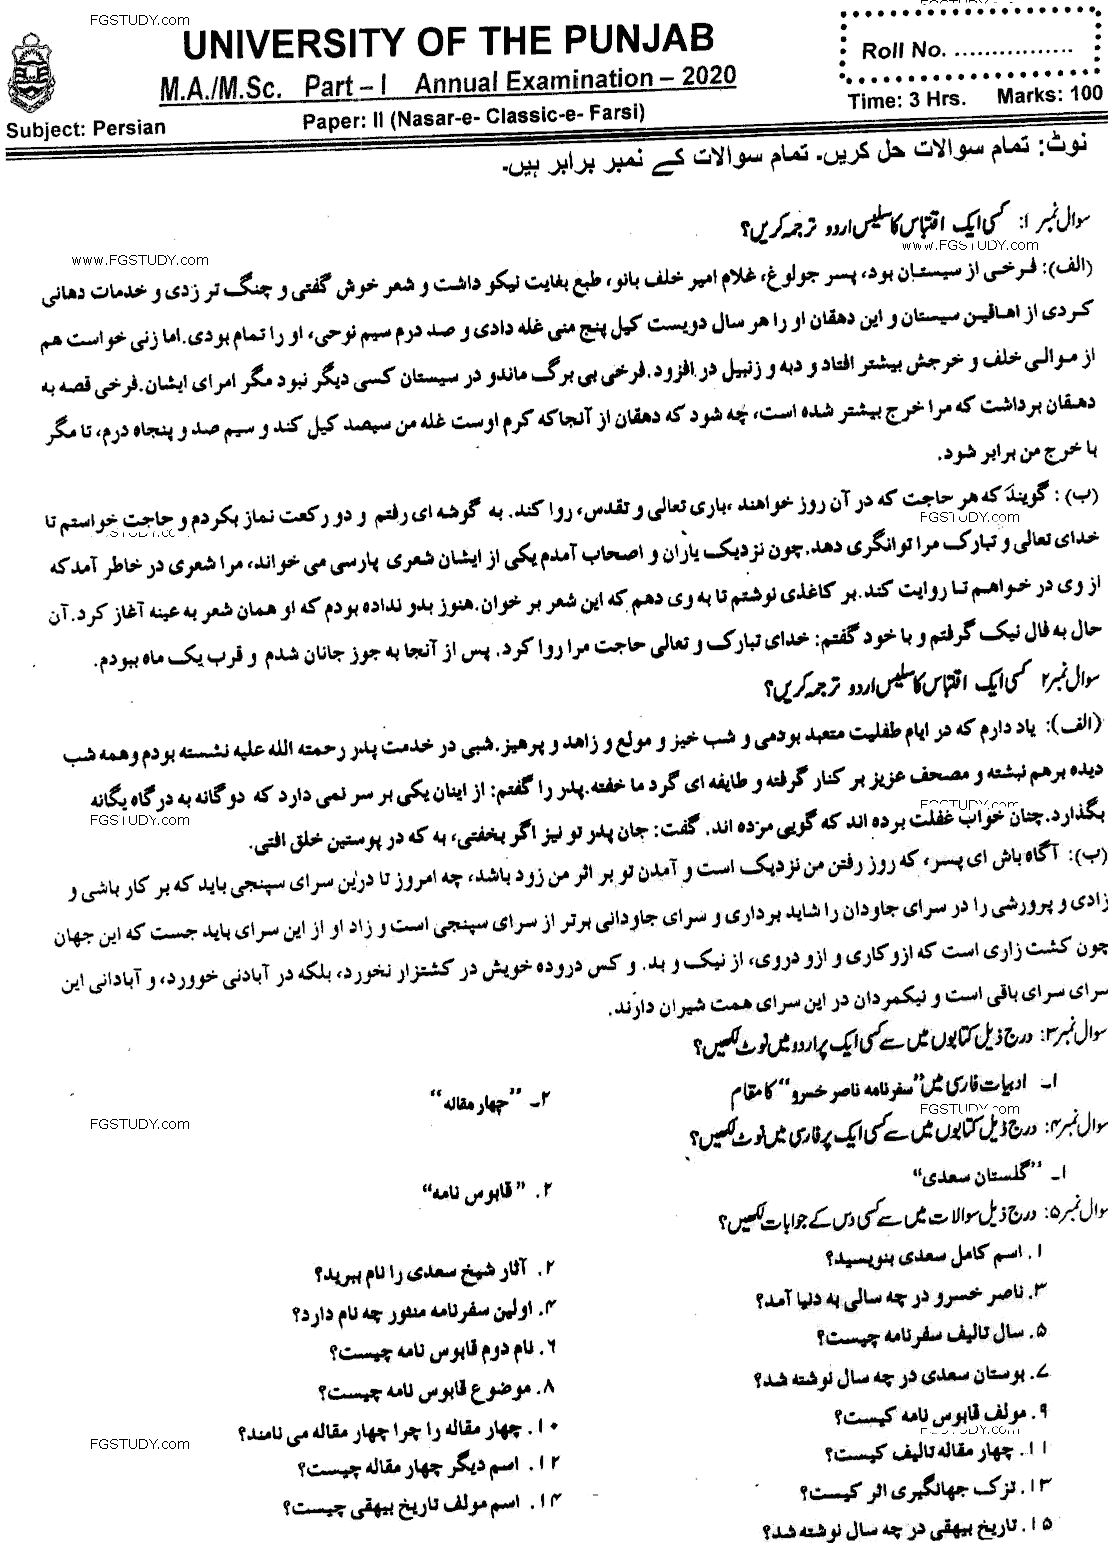 FGSTUDY.com
UNIVERSITY OF THE PUNJAB
M.A./M.Sc. Part – I Annual Examination – 2020
Subject: Persian
Paper: II (Nasar-e- Classic-e- Farsi)
Roll No. ................
Time: 3 Hrs. Marks: 100
نوٹ: تمام سوالات حل کریں۔ تمام سوالات کے نمبر برابر ہیں۔
سوال نمبر ۱: کسی ایک اقتباس کا سلیس اردو ترجمہ کریں؟
www.FGSTUDY.com
www.FGSTUDY.com
(الف): فرخی از سیستان بود، پسر جولوغ، غلام امیر خلف بانو، طبع بغایت نیکو داشت و شعر خوش گفتی و چنگ تر زدی و خدمات دهانی
کردی از اهاقین سیستان و این دهقان او را هر سال دویست کیل پنج منی غله دادی و صد درم سیم نوحی، او را تمام بودی.اما زنی خواست هم
از موالی خلف و خرجش بیشتر افتاد و دبه و زنبیل در افزود.فرخی بی برگ ماندو در سیستان کسی دیگر نبود مگر امرای ایشان.فرخی قصه به
دهقان برداشت که مرا خرج بیشتر شده است، چه شود که دهقان از آنجاکه کرم اوست غله من سیصد کیل کند و سیم صد و پنجاه درم، تا مگر
با خرج من برابر شود.
(ب) : گویند که هر حاجت که در آن روز خواهند ،باری تعالی و تقدس، روا کند. به گوشه ای رفتم و دو رکعت نماز بکردم و حاجت خواستم تا
FGSTUDY.com
خدای تعالی و تبارک مرا توانگری دهد.چون نزدیک یاران و اصحاب آمدم یکی از ایشان شعری پارسی می خواند، مرا شعری در خاطر آمدکه
از وی در خواهم تا روایت کند. بر کاغذی نوشتم تا به وی دهم که این شعر بر خوان.هنوز بدو نداده بودم که او همان شعر به عینه آغاز کرد.آن
حال به فال نیک گرفتم و با خود گفتم: خدای تبارک و تعالی حاجت مرا روا کرد. پس از آنجا به جوز جانان شدم و قرب یک ماه ببودم.
سوال نمبر ۲ کسی ایک اقتباس کا سلیس اردو ترجمہ کریں؟
(الف): یاد دارم که در ایام طفلیت متعبد بودمی و شب خیز و مولع و زاهد و پرهیز.شبی در خدمت پدر رحمته الله علیه نشسته بودم وهمه شب
دیده برهم نبشته و مصحف عزیز بر کنار گرفته و طایفه ای گرد ما خفته.پدر را گفتم: از اینان یکی بر سر نمی دارد که دوگانه به درگاه یگانه
FGSTUDY.com
FGSTUDY.com
بگذارد.چنان خواب غفلت برده اند که گویی مرده اند. گفت: جان پدر تو نیز اگر بخفتی، به که در پوستین خلق افتی.
(ب): آگاه باش ای پسر، که روز رفتن من نزدیک است و آمدن تو بر اثر من زود باشد، چه امروز تا دراین سرای سپنجی باید که بر کار باشی و
زادی و پرورشی را در سرای جاودان را شاید برداری و سرای جاودانی برتر از سرای سپنجی است و زاد او از این سرای باید جست که این جهان
چون کشت زاری است که ازو کاری و ازو دروی، از نیک و بد. و کس دروده خویش در کشتزار نخورد، بلکه در آبادنی خوورد، و آبادانی این
سرای سرای باقی است و نیکمردان در این سرای همت شیران دارند.
سوال نمبر ۳: درج ذیل کتابوں میں سے کسی ایک پر اردو میں نوٹ لکھیں؟
۱۔ ادبیات فارسی میں "سفرنامه ناصر خسرو" کا مقام
۲۔ "چهار مقاله"
FGSTUDY.com
FGSTUDY.com
سوال نمبر ۴: درج ذیل کتابوں میں سے کسی ایک پر فارسی میں نوٹ لکھیں؟
۱۔ "گلستان سعدی"
۲. "قابوس نامه"
سوال نمبر ۵: درج ذیل سوالات میں سے کسی دس کے جوابات لکھیں؟
۱. اسم کامل سعدی بنویسید؟
۲. آثار شیخ سعدی را نام ببرید؟
۳. ناصر خسرو در چه سالی به دنیا آمد؟
۴. اولین سفرنامه منثور چه نام دارد؟
۵. سال تالیف سفرنامه چیست؟
۶. نام دوم قابوس نامه چیست؟
۷. بوستان سعدی در چه سال نوشته شد؟
۸. موضوع قابوس نامه چیست؟
۹. مولف قابوس نامه کیست؟
۱۰. چهار مقاله را چرا چهار مقاله می نامند؟
FGSTUDY.com
۱۱. چهار مقاله تالیف کیست؟
۱۲. اسم دیگر چهار مقاله چیست؟
۱۳. تزک جهانگیری اثر کیست؟
۱۴. اسم مولف تاریخ بیهقی چیست؟
۱۵. تاریخ بیهقی در چه سال نوشته شد؟